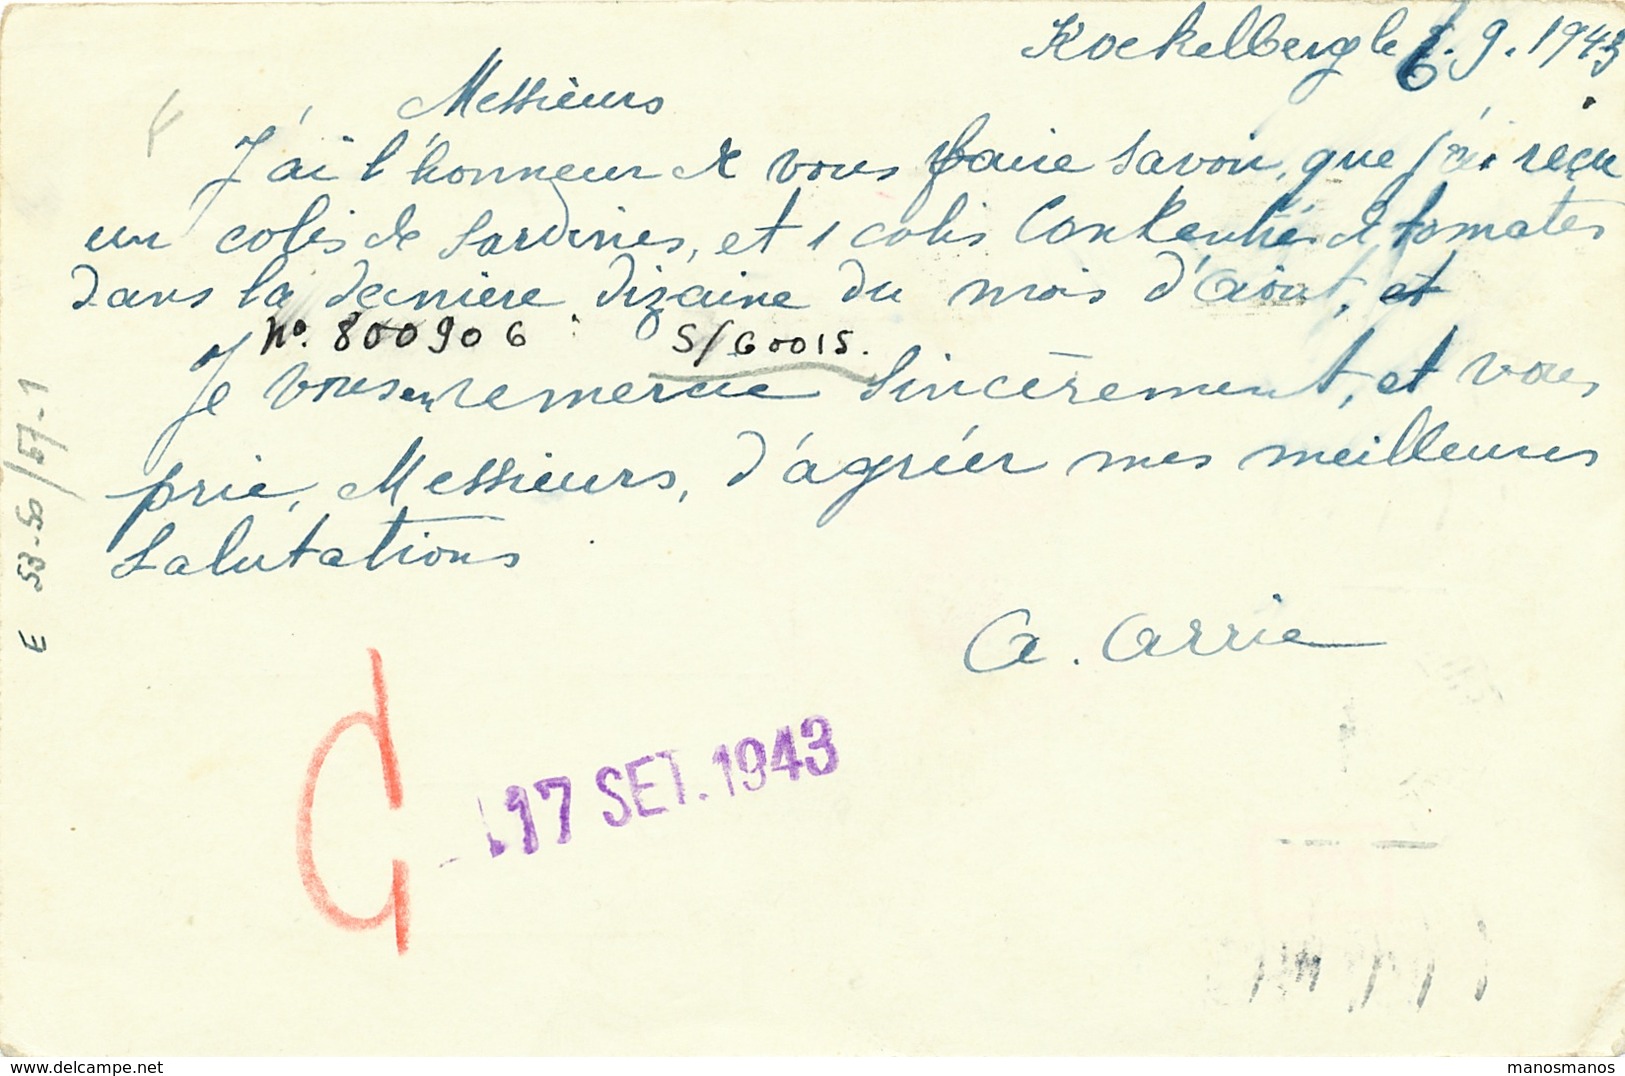 Kockelberg le 6.9.1943
Messieurs
J'ai l'honneur de vous faire savoir, que j'ai reçu
un colis de sardines, et 1 colis Conkentré de tomates
dans la dernière dizaine du mois d'Aout, et
No. 800906 : S/60015.
Je vous en remercie Sincèrement, et vous
prie, Messieurs, d'agréer mes meilleures
Salutations
A. Arrie
E 53-50/57-1
17 SET. 1943
manosmanos